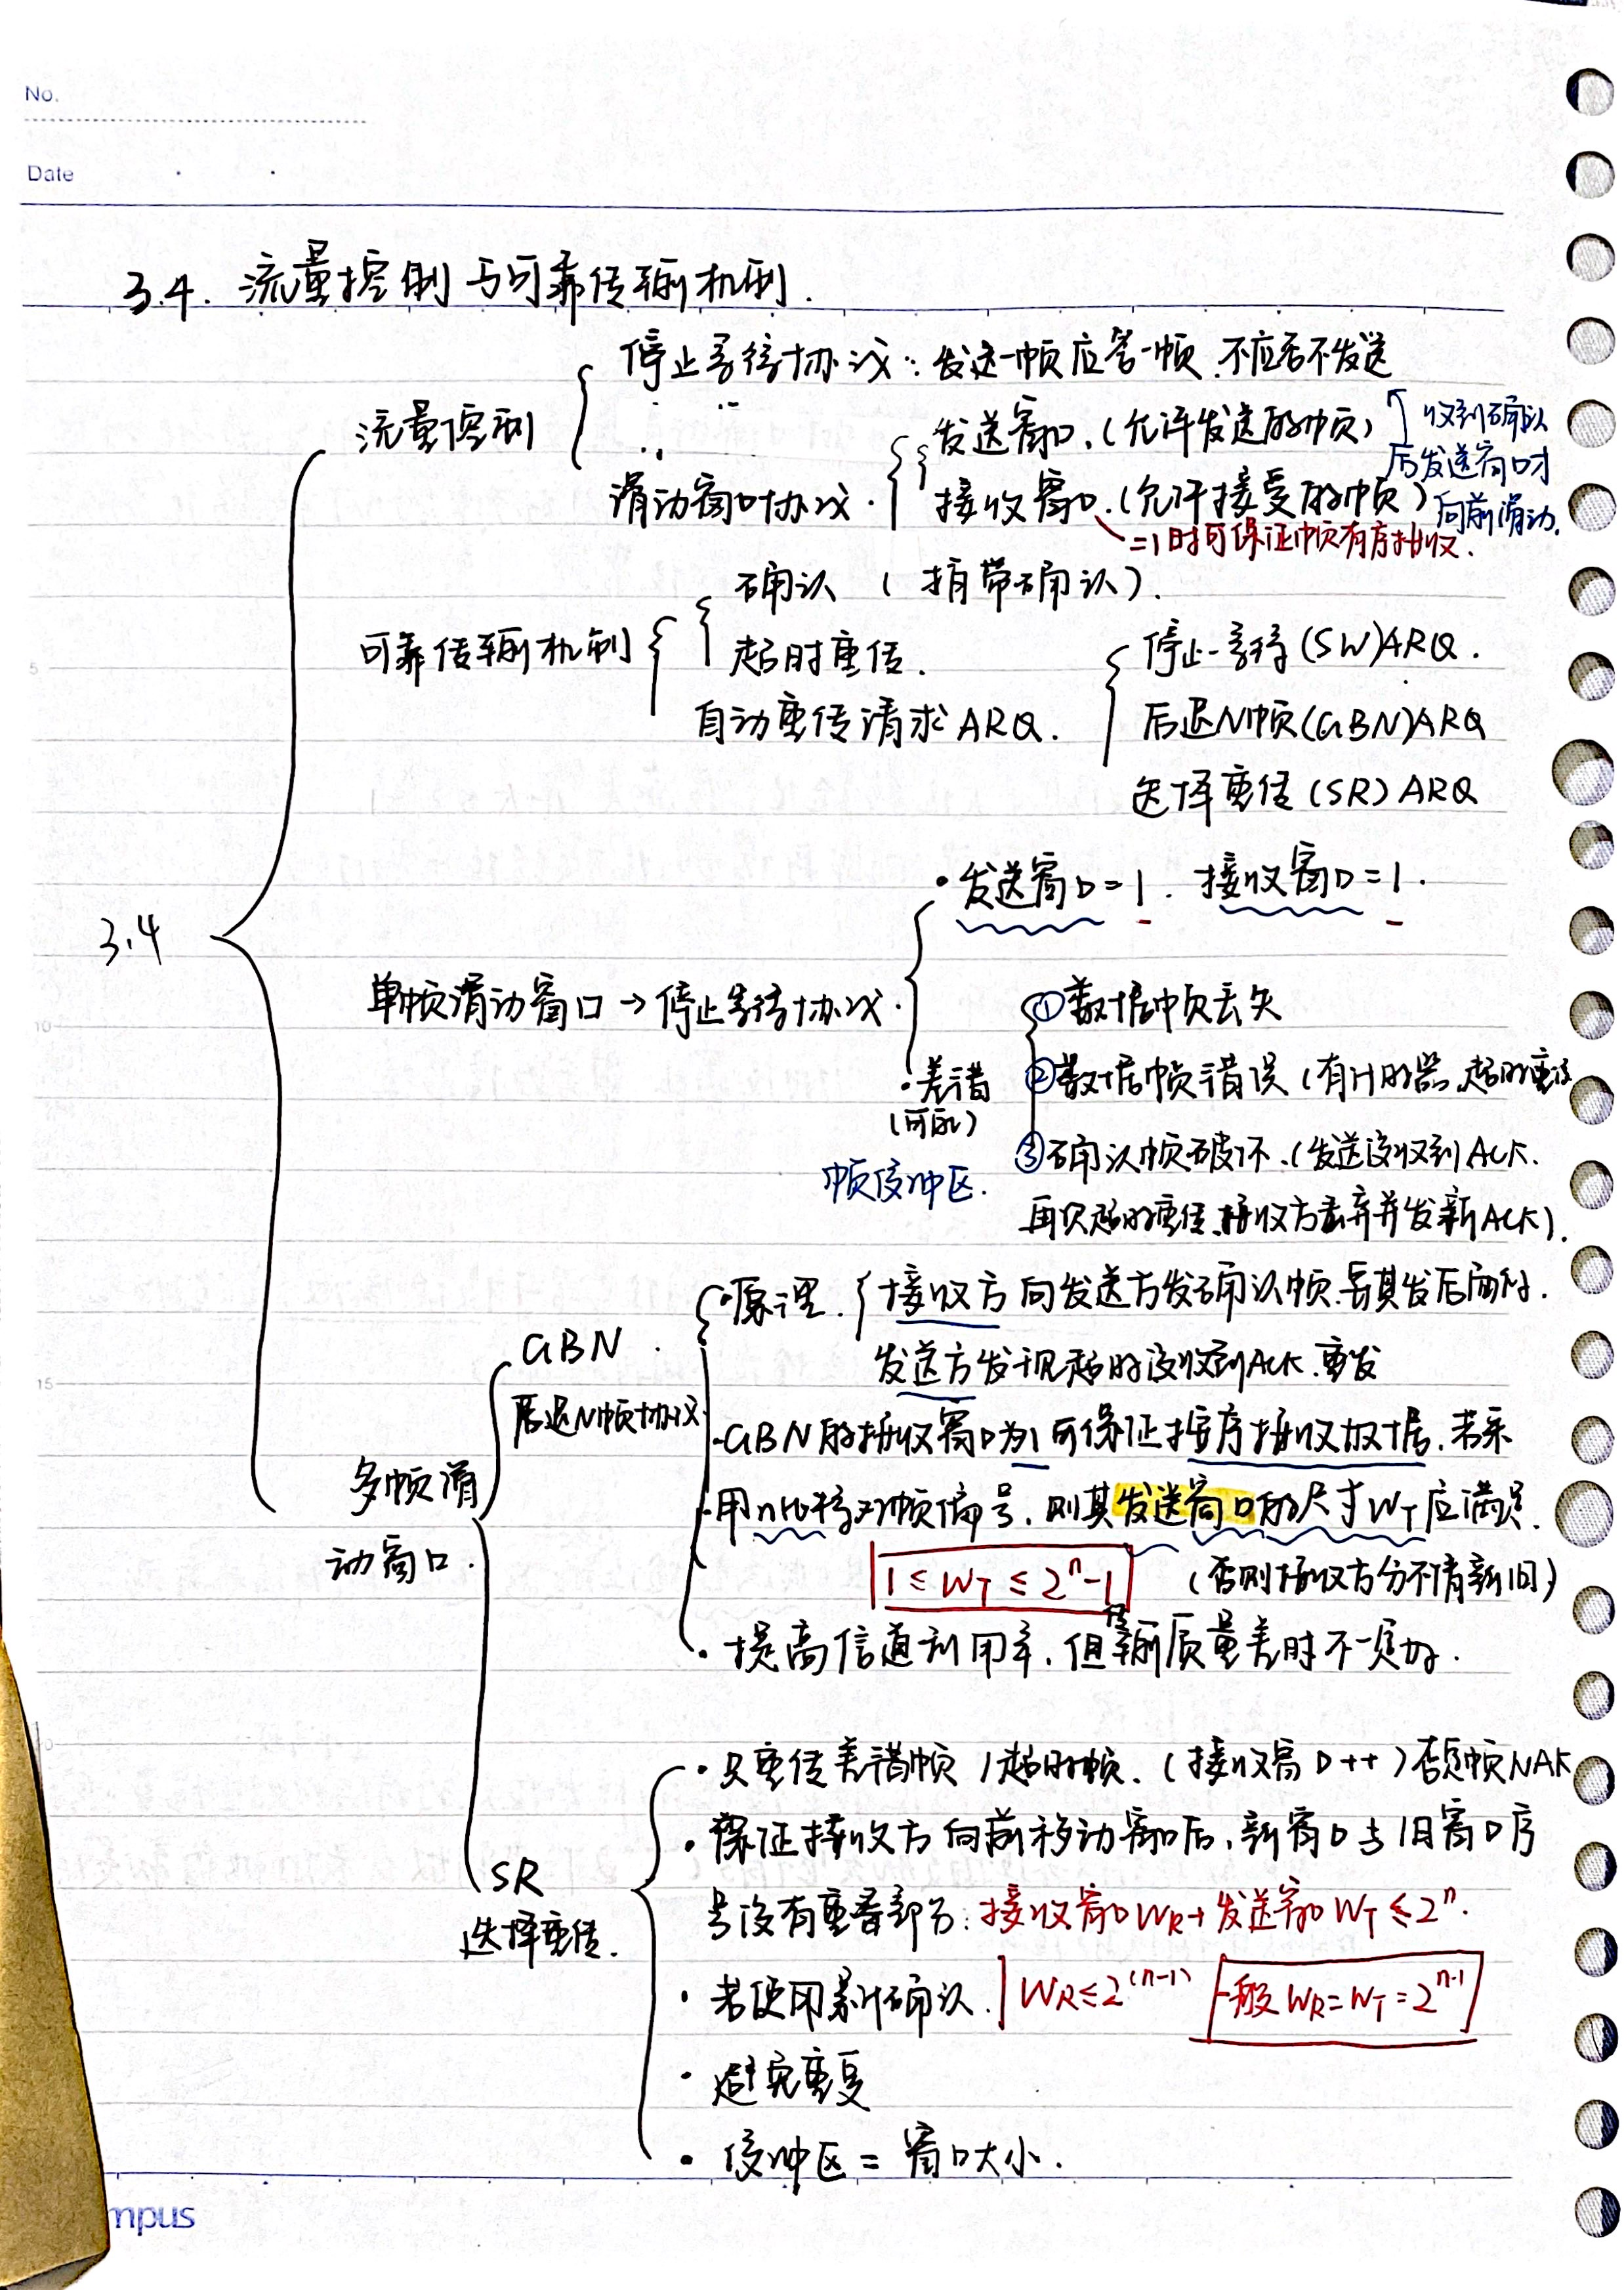 No.
Date
3.4. 流量控制与可靠传输机制.
停止等待协议: 发送一帧应答一帧.不应答不发送
流量控制
发送窗口.(允许发送的帧)
收到确认
后发送窗口才
向前滑动.
滑动窗口协议.
接收窗口.(允许接受的帧)
=1时可保证帧有序接收.
确认 (捎带确认).
可靠传输机制
超时重传.
自动重传请求ARQ.
停止-等待(SW)ARQ.
后退N帧(GBN)ARQ
选择重传(SR)ARQ
3.4
·发送窗口=1. 接收窗口=1.
单帧滑动窗口→停止等待协议.
①数据帧丢失
·差错
(可能)
②数据帧错误(有计时器,超时重传
③确认帧破坏.(发送没收到ACK.
再次超时重传,接收方丢弃并发新ACK).
帧缓冲区.
多帧滑
动窗口.
GBN
后退N帧协议
·原理.
接收方向发送方发确认帧.
发送方发现超时没收到ACK.重发
·GBN的接收窗口为1可保证按序接收数据.若采
·用n比特对帧编号,则其发送窗口的尺寸WT应满足.
1≤WT≤2ⁿ-1
(否则接收方分不清新旧)
·提高信道利用率,但传输质量差时不一定好.
SR
选择重传.
·只重传差错帧/超时帧.(接收窗口++)否定帧NAK
·保证接收方向前移动窗口后,新窗口与旧窗口序
号没有重叠部分:接收窗口WR+发送窗口WT≤2ⁿ.
·若使用累计确认. WR≤2⁽ⁿ⁻¹⁾ 一般WR=WT=2ⁿ⁻¹
·避免重复
·缓冲区=窗口大小.
mpus